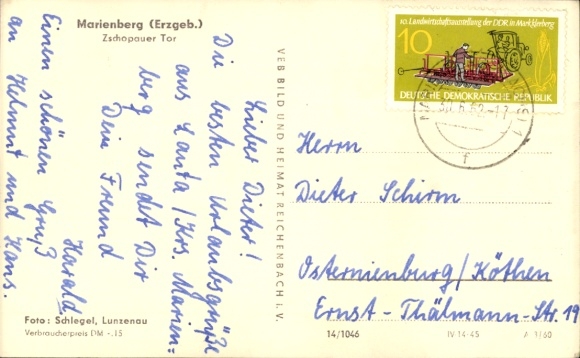 Marienberg (Erzgeb.)
Zschopauer Tor
Lieber Dieter!
Die besten Urlaubsgrüße
aus Lauta/Krs. Marien=
berg sendet Dir
Dein Freund
Harald
Einen schönen Gruß
an Helmut und Hans.
Foto: Schlegel, Lunzenau
Verbraucherpreis DM -.15
VEB BILD UND HEIMAT REICHENBACH I. V.
10. Landwirtschaftsausstellung der DDR in Markkleeberg
10
DEUTSCHE DEMOKRATISCHE REPUBLIK
f
Herrn
Dieter Schirm
Osternienburg/Köthen
Ernst-Thälmann-Str. 19
14/1046
IV-14-45
A 1/60